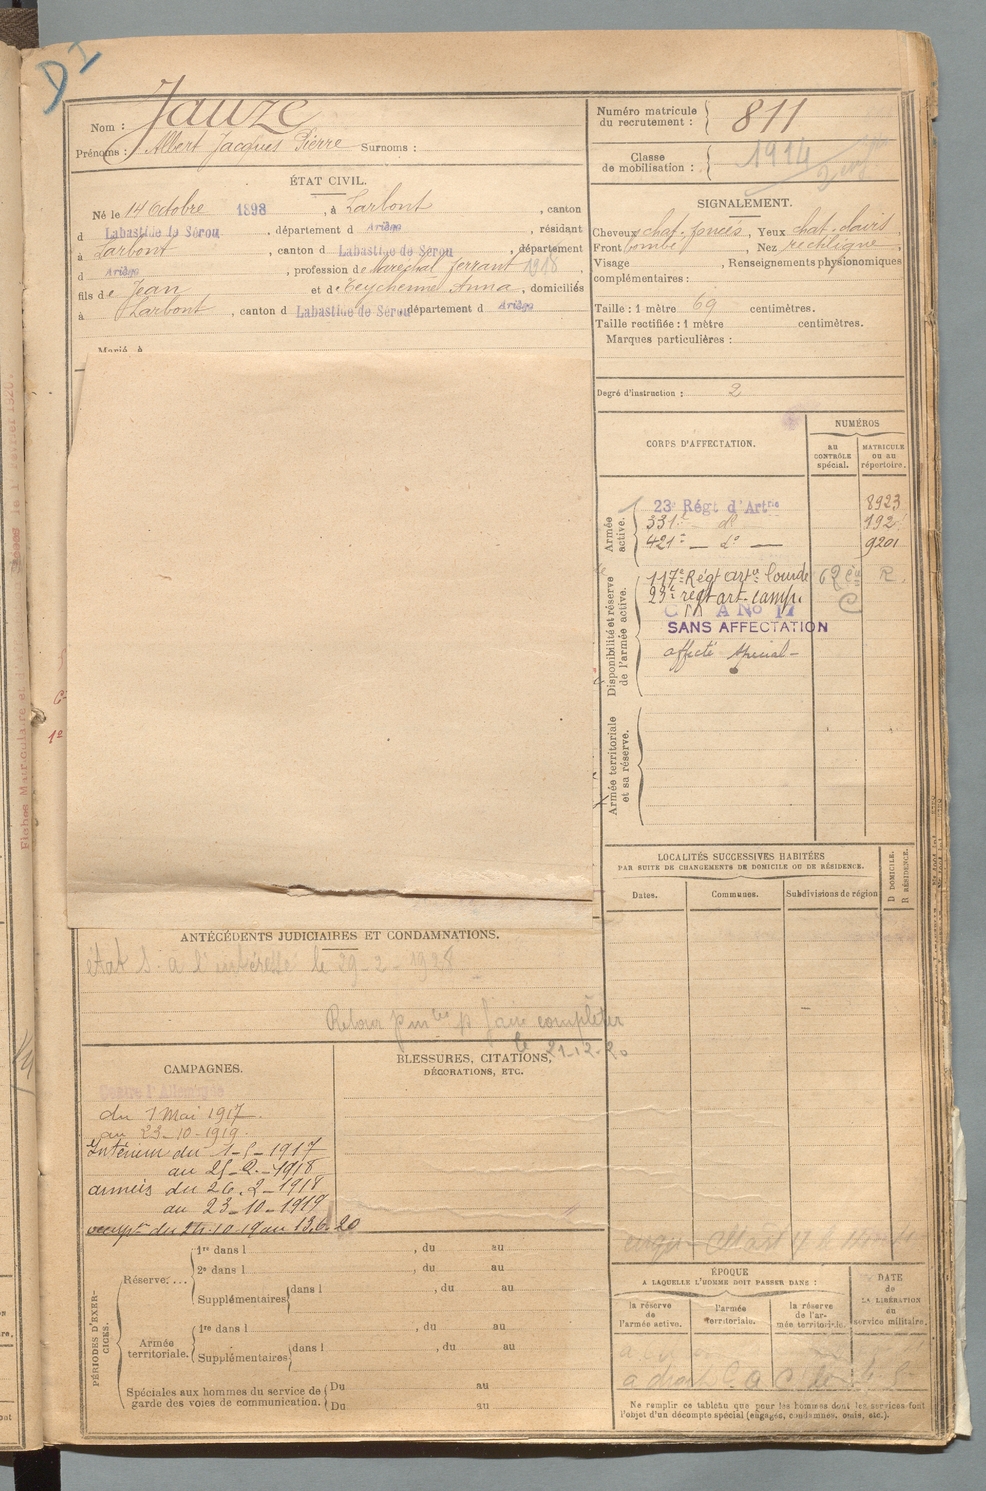 DI
Nom : Jauze
Prénoms : Albert Jacques Pierre Surnoms :
Numéro matricule du recrutement : 811
Classe de mobilisation : 1914
ÉTAT CIVIL.
Né le 14 Octobre 1898, à Larbont, canton
d Labastide de Sérou, département d Ariège, résidant
à Larbont, canton d Labastide de Sérou, département
d Ariège, profession de Maréchal ferrant 1918.
fils de Jean et de Teychenne Anna, domiciliés
à Larbont, canton d Labastide de Sérou département d Ariège
Marié à
SIGNALEMENT.
Cheveux chat. foncés, Yeux chat. clairs,
Front bombé, Nez rectiligne,
Visage , Renseignements physionomiques
complémentaires :
Taille : 1 mètre 69 centimètres.
Taille rectifiée : 1 mètre centimètres.
Marques particulières :
Degré d'instruction : 2
CORPS D'AFFECTATION.
NUMÉROS
AU CONTRÔLE spécial.
MATRICULE OU AU répertoire.
Armée active.
23e Régt d'Artrie 8923
331e — do 192
421e — do — 9201
Disponibilité et réserve de l'armée active.
117e Régt artie lourde R.
23e régt art. camp.
SANS AFFECTATION
affecté spécial -
Armée territoriale et sa réserve.
LOCALITÉS SUCCESSIVES HABITÉES
PAR SUITE DE CHANGEMENTS DE DOMICILE OU DE RÉSIDENCE.
Dates.
Communes.
Subdivisions de région
D DOMICILE.
R RÉSIDENCE.
ANTÉCÉDENTS JUDICIAIRES ET CONDAMNATIONS.
état S. à l'intéressé le 29-2-1928
Retour faire compléter
le 21-12-20
CAMPAGNES.
Contre l'Allemagne
du 1 Mai 1917.
au 23-10-1919.
Intérieur du 1-5-1917
au 25-2-1918
armées du 26.2-1918
au 23-10-1919
occupt du 24.10.19 au 13.6.20
BLESSURES, CITATIONS,
DÉCORATIONS, ETC.
PÉRIODES D'EXERCICES.
Réserve....
1re dans l , du au
2e dans l , du au
Supplémentaires dans l , du au
Armée territoriale.
1re dans l , du au
Supplémentaires dans l , du au
Spéciales aux hommes du service de garde des voies de communication.
Du au
Du au
ÉPOQUE
A LAQUELLE L'HOMME DOIT PASSER DANS :
la réserve de l'armée active.
l'armée territoriale.
la réserve de l'armée territoriale.
DATE de LA LIBÉRATION du service militaire.
a droit
Ne remplir ce tableau que pour les hommes dont les services font
l'objet d'un décompte spécial (engagés, condamnés, omis, etc.).